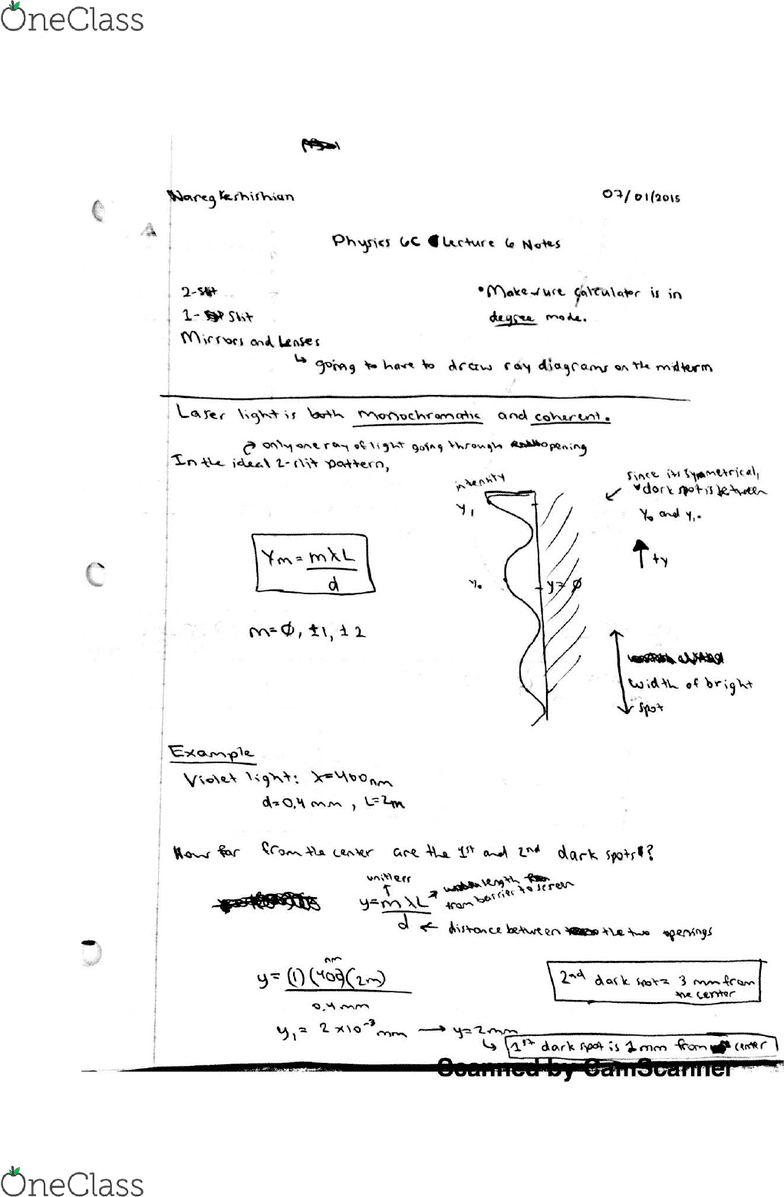 OneClass
Nareg Keshishian
07/01/2015
Physics 6C Lecture 6 Notes
2-slit
1- Slit
Mirrors and Lenses
• Make sure calculator is in
degree mode.
↳ going to have to draw ray diagrams on the midterm
Laser light is both monochromatic and coherent.
only one ray of light going through opening
In the ideal 2-slit pattern,
intensity
since its symmetrical,
dark spot is between
y₀ and y₁.
y₁
Ym = mλL
d
+y
y₀
y = ∅
m=∅, ±1, ±2
width of bright
spot
Example
Violet light: λ=400nm
d=0.4 mm, L=2m
How far from the center are the 1st and 2nd dark spots?
unitless
length
from barrier to screen
y=mλL
d ← distance between the two openings
nm
y= (1)(400)(2m)
0.4 mm
2nd dark spot = 3 mm from
the center
y₁ = 2 x10⁻³ mm → y=2mm
↳ 1st dark spot is 1mm from center
Scanned by CamScanner
OneClass